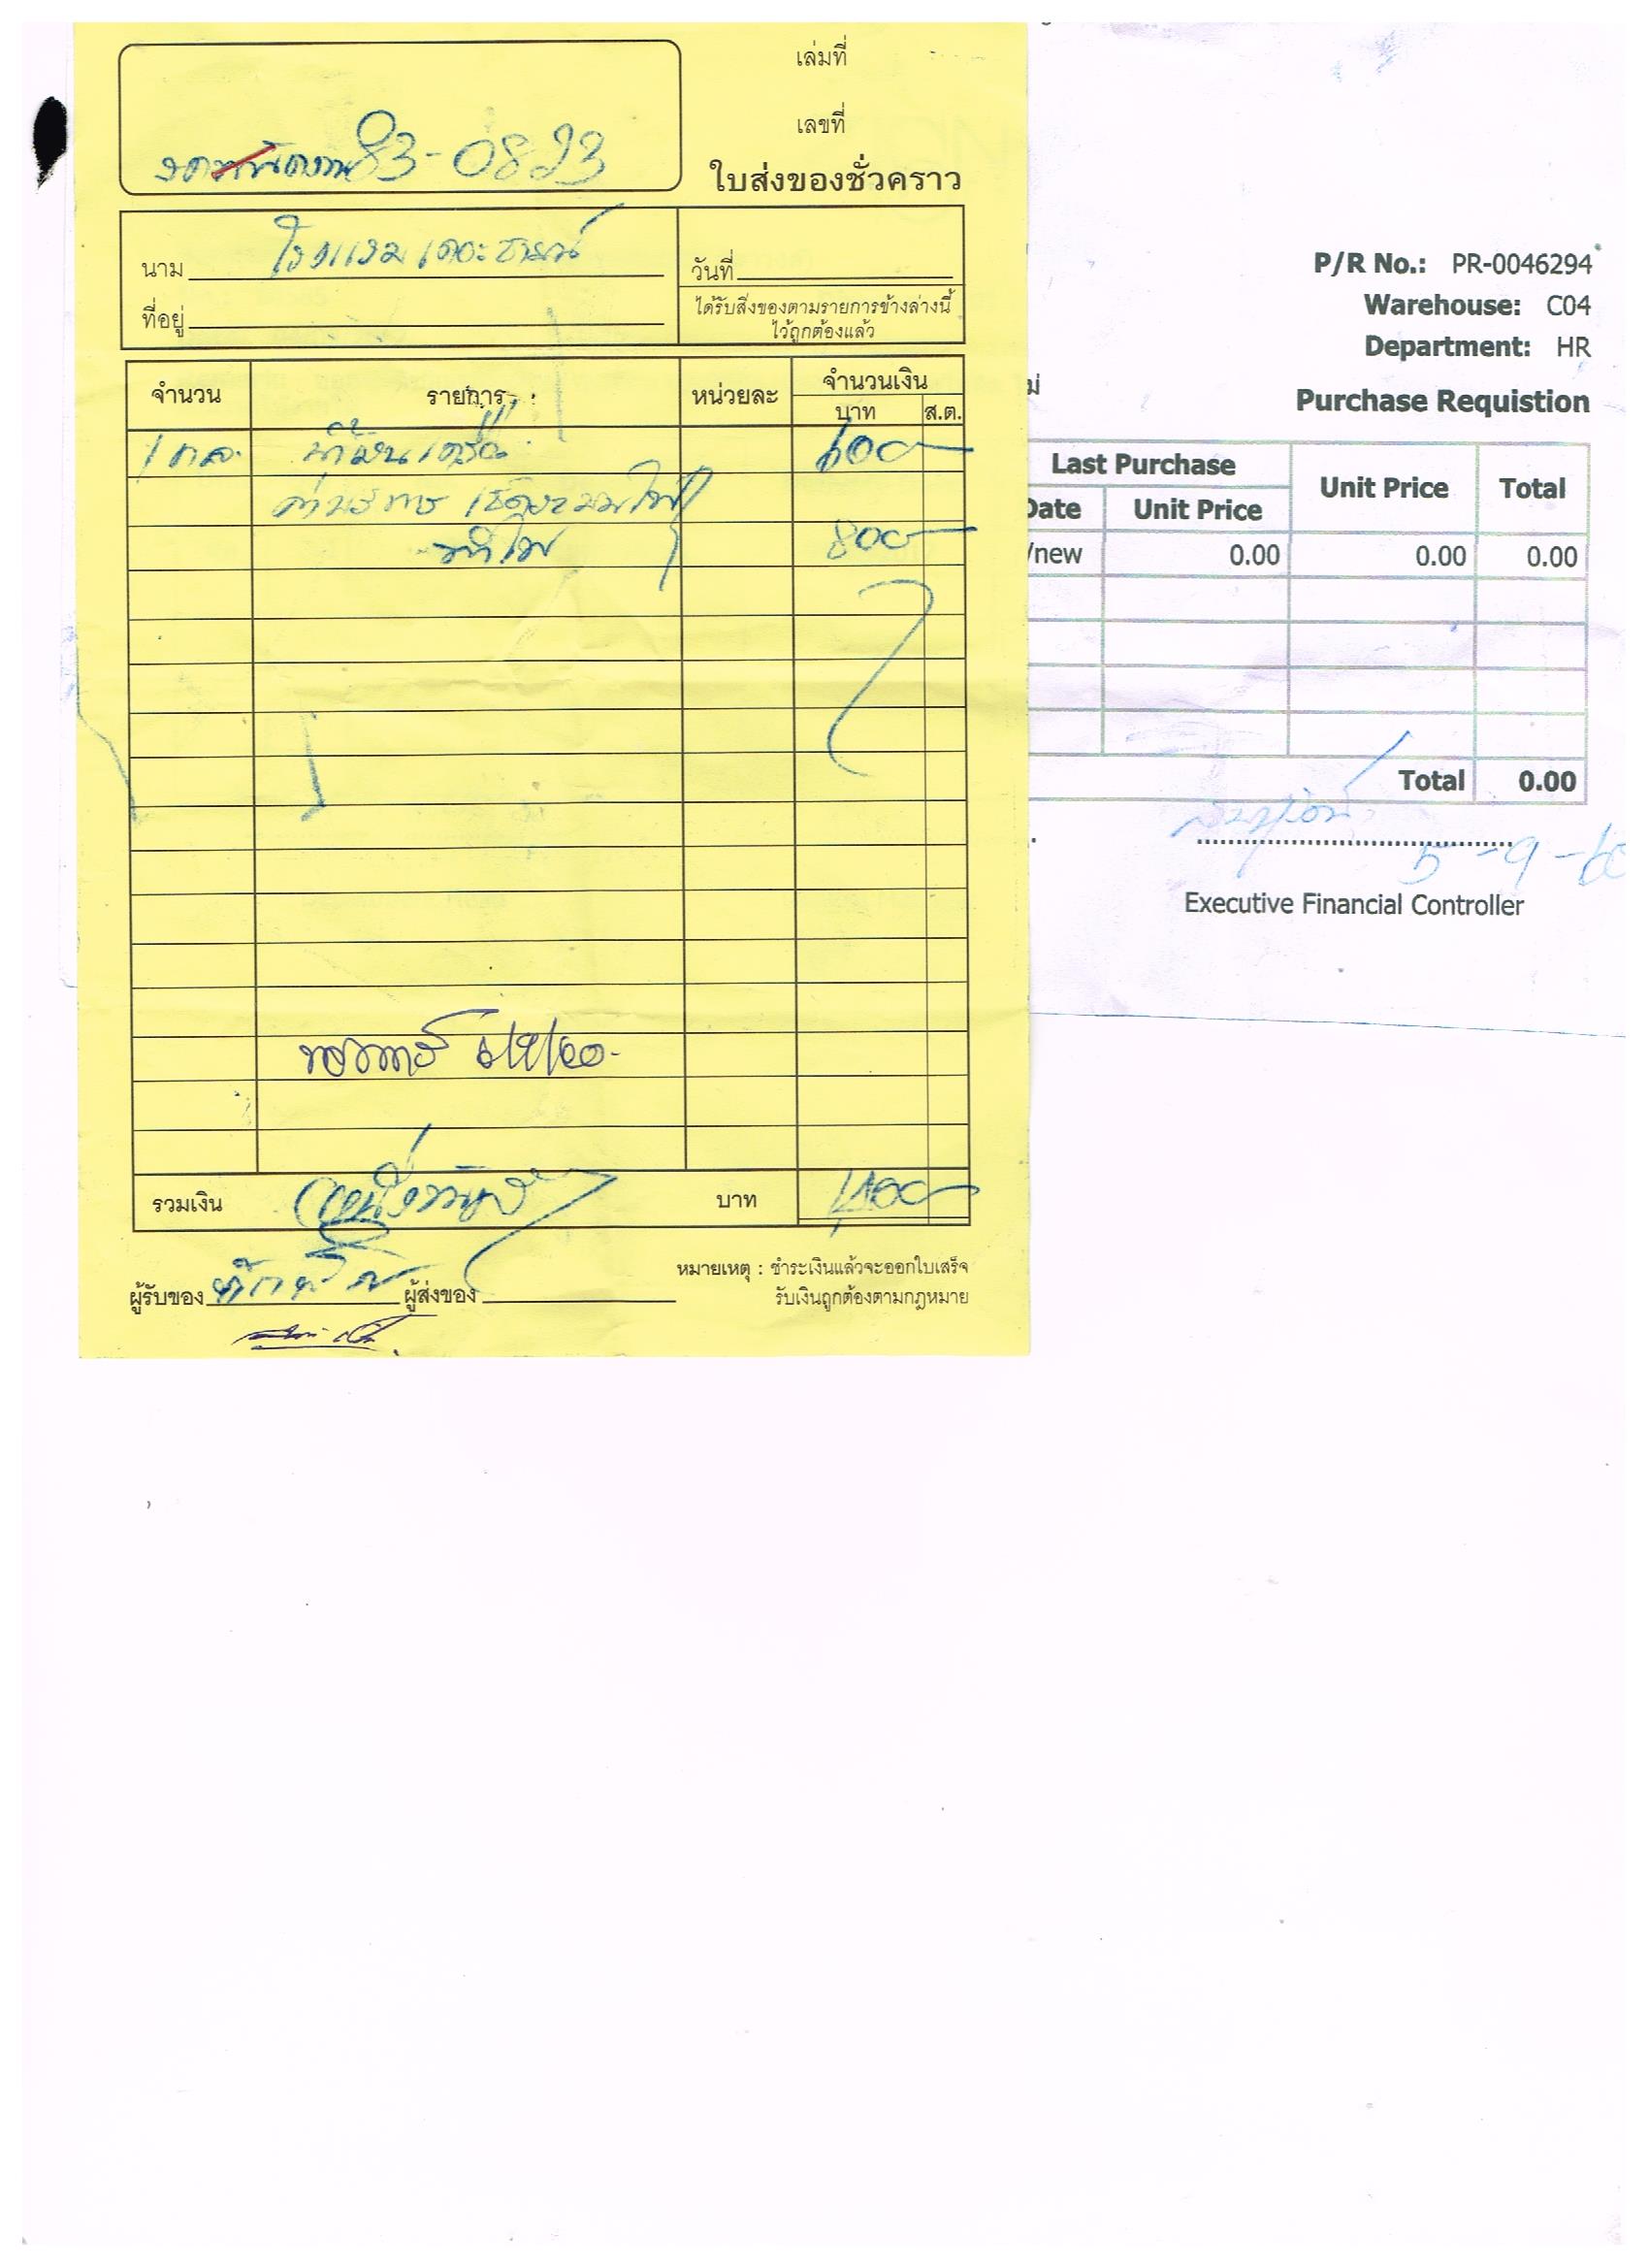 เล่มที่
เลขที่
83-0823
ใบส่งของชั่วคราว
นาม โรงแรมเดอะธารน์
วันที่
ที่อยู่
ได้รับสิ่งของตามรายการข้างล่างนี้
ไว้ถูกต้องแล้ว
จำนวน รายการ หน่วยละ จำนวนเงิน
บาท ส.ต.
1 กล. น้ำมันเครื่อง 600-
ค่าบริการ
800-
5/9/60-
รวมเงิน บาท 1,400-
ผู้รับของ ผู้ส่งของ
หมายเหตุ : ชำระเงินแล้วจะออกใบเสร็จ
รับเงินถูกต้องตามกฎหมาย
P/R No.: PR-0046294
Warehouse: C04
Department: HR
Purchase Requistion
Last Purchase Unit Price Total
Date Unit Price
/new 0.00 0.00 0.00
Total 0.00
5-9-60
Executive Financial Controller